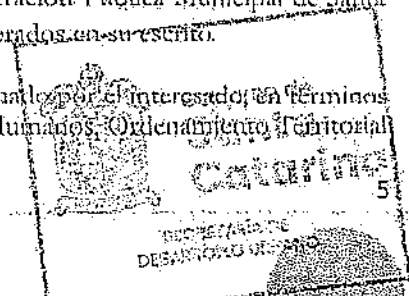 ración Pública Municipal de Santa
erados en su escrito.
uado por el interesado, en términos
Humanos, Ordenamiento Territorial
Catarina
5
SECRETARÍA DE
DESARROLLO URBANO